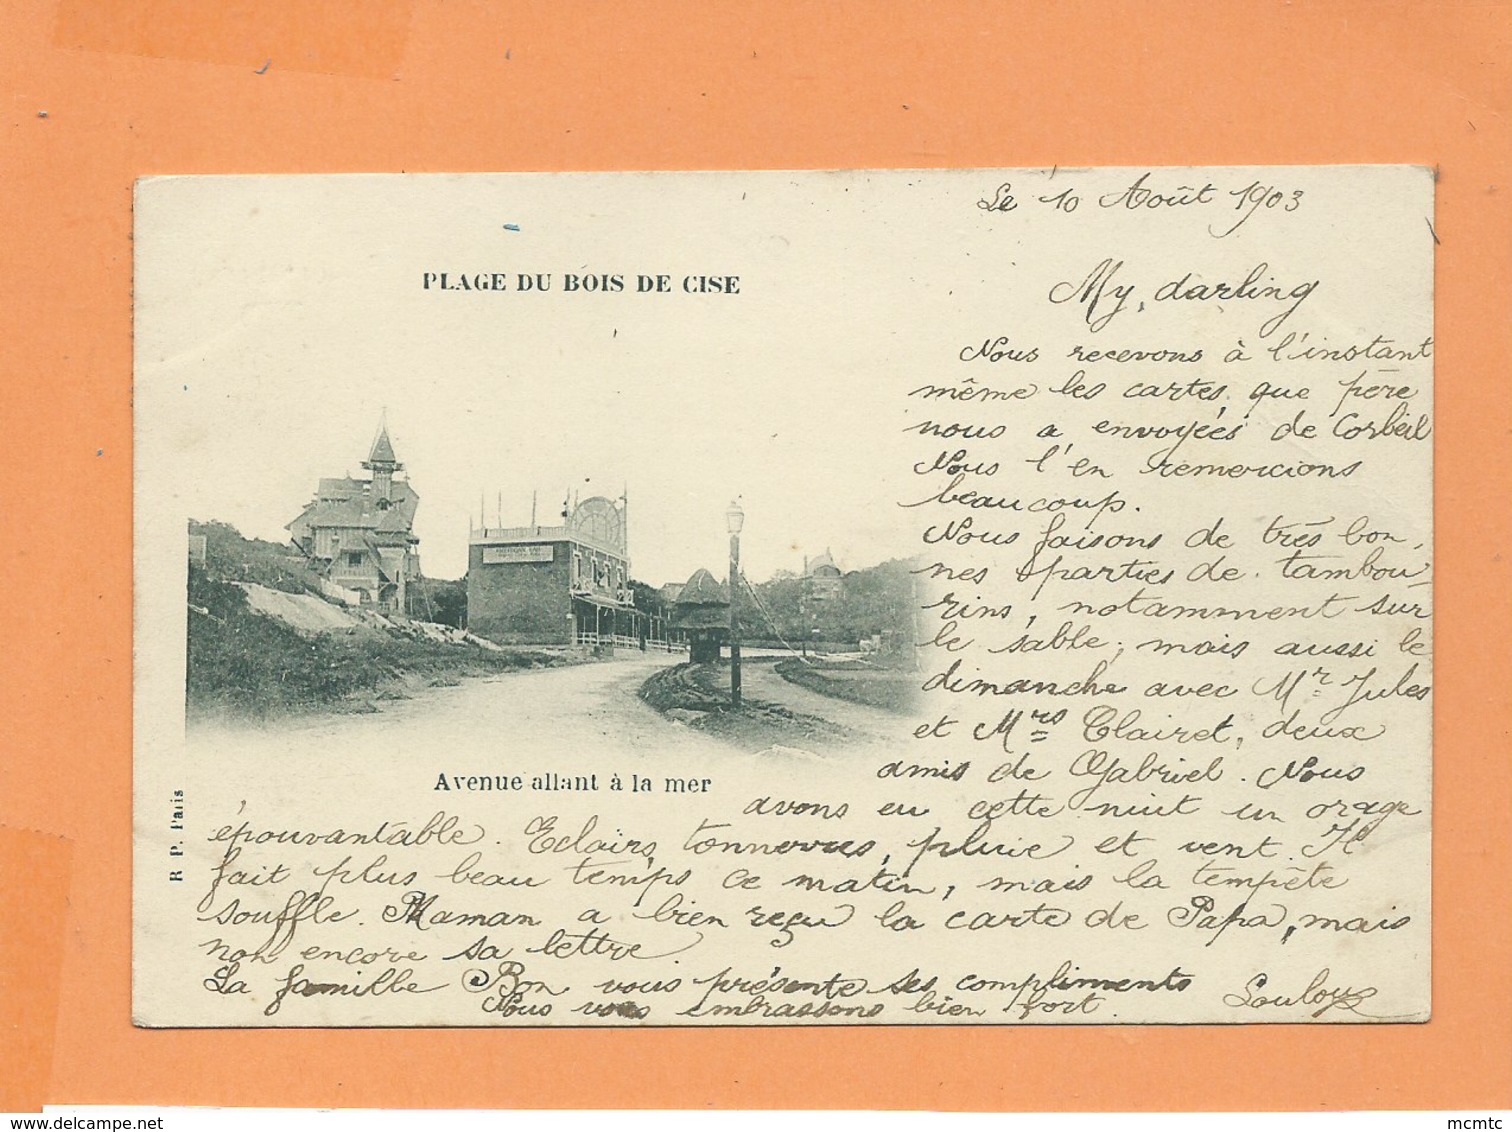 Le 10 Août 1903
PLAGE DU BOIS DE CISE
My darling
Nous recevons à l'instant
même les cartes que père
nous a envoyées de Corbeil
Nous l'en remercions
beaucoup.
Nous faisons de très bon,
nes parties de tambou-
rins, notamment sur
le sable; mais aussi le
dimanche avec Mr Jules
et Mrs Clairet, deux
amis de Gabriel. Nous
Avenue allant à la mer
avons eu cette nuit un orage
épouvantable. Eclairs, tonnerres, pluie et vent. Il
fait plus beau temps ce matin, mais la tempête
souffle. Maman a bien reçu la carte de Papa, mais
non encore sa lettre.
La famille Bon vous présente ses compliments
Nous vous embrassons bien fort.
Loulou
R. P. Paris
www.delcampe.net
mcmtc